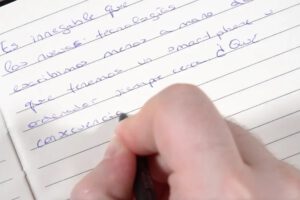 Es innegable que
las nuevas tecnologías
escribimos menos a mano de
que tenemos un smartphone u
ordenador siempre cerca ¿Qué
consecuencias